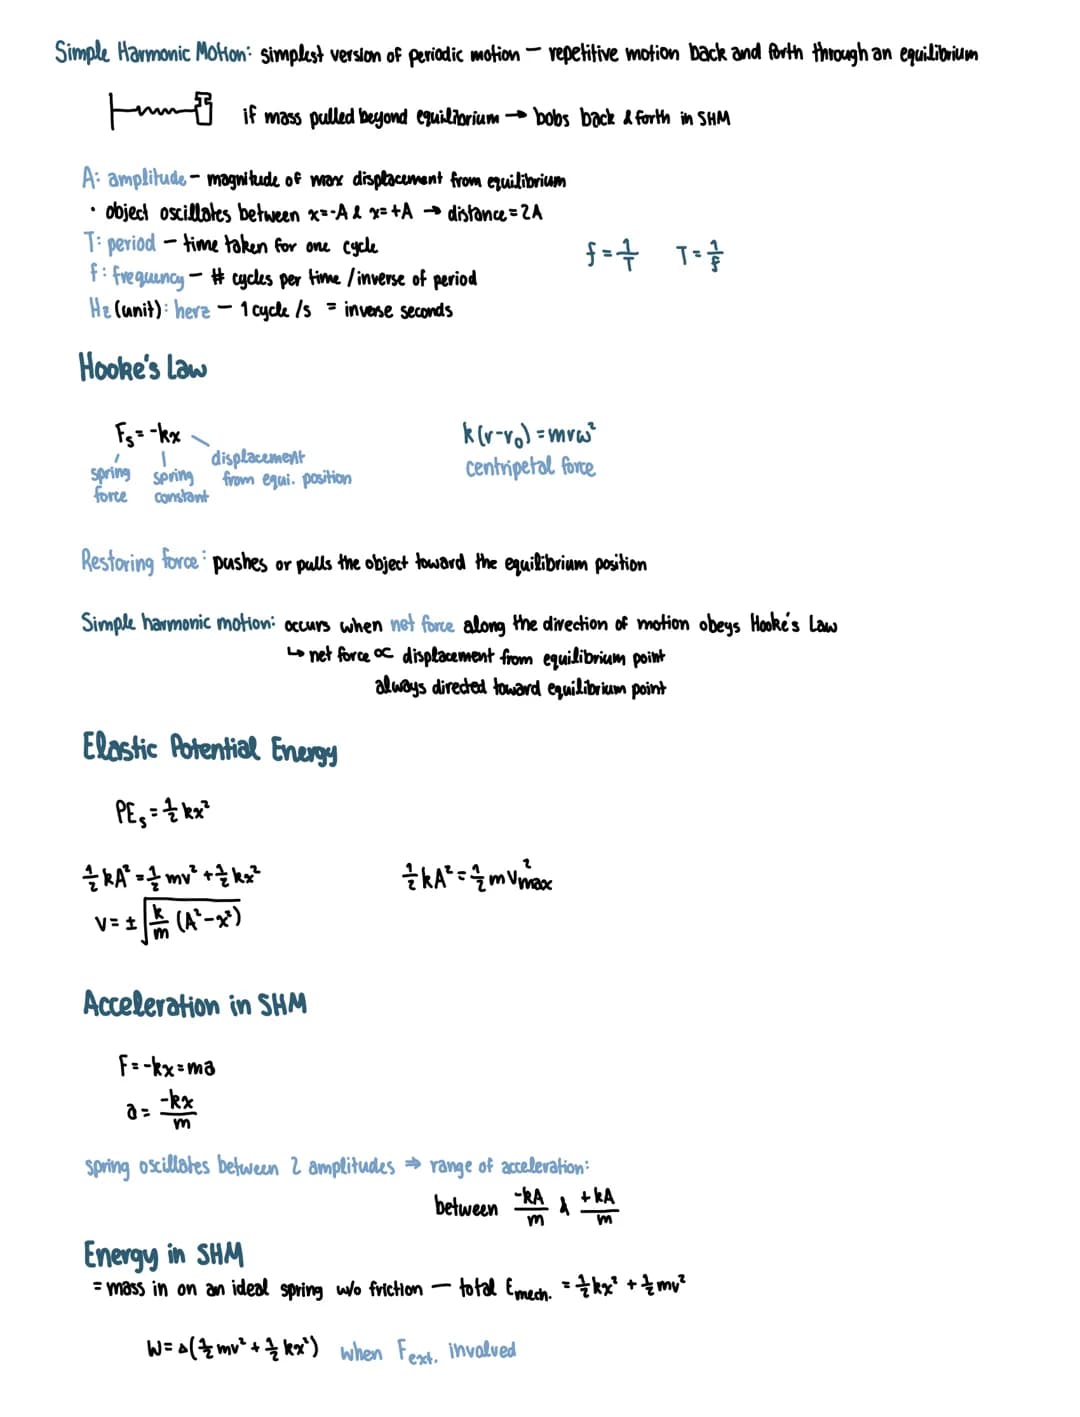 Simple Harmonic Motion: simplest version of periodic motion — repetitive motion back and forth through an equilibrium
if mass pulled beyond equilibrium → bobs back & forth in SHM
A: amplitude — magnitude of max displacement from equilibrium
• object oscillates between x=-A & x=+A → distance=2A
T: period — time taken for one cycle
f = 1/T   T = 1/f
f: frequency — # cycles per time / inverse of period
Hz (unit): herz — 1 cycle /s = inverse seconds
Hooke's Law
Fₛ = -kx
k(r-r₀) = mrω²
spring force
spring constant
displacement from equi. position
centripetal force
Restoring force: pushes or pulls the object toward the equilibrium position
Simple harmonic motion: occurs when net force along the direction of motion obeys Hooke's Law
↳ net force ∝ displacement from equilibrium point
always directed toward equilibrium point
Elastic Potential Energy
PEₛ = ½ kx²
½ kA² = ½ mv² + ½ kx²
½ kA² = ½ m v²max
v = ± √(k/m (A²-x²))
Acceleration in SHM
F = -kx = ma
a = -kx/m
spring oscillates between 2 amplitudes ⇒ range of acceleration:
between -kA/m & +kA/m
Energy in SHM
= mass in on an ideal spring w/o friction — total Emech. = ½ kx² + ½ mv²
W = Δ(½ mv² + ½ kx²) when Fext. involved